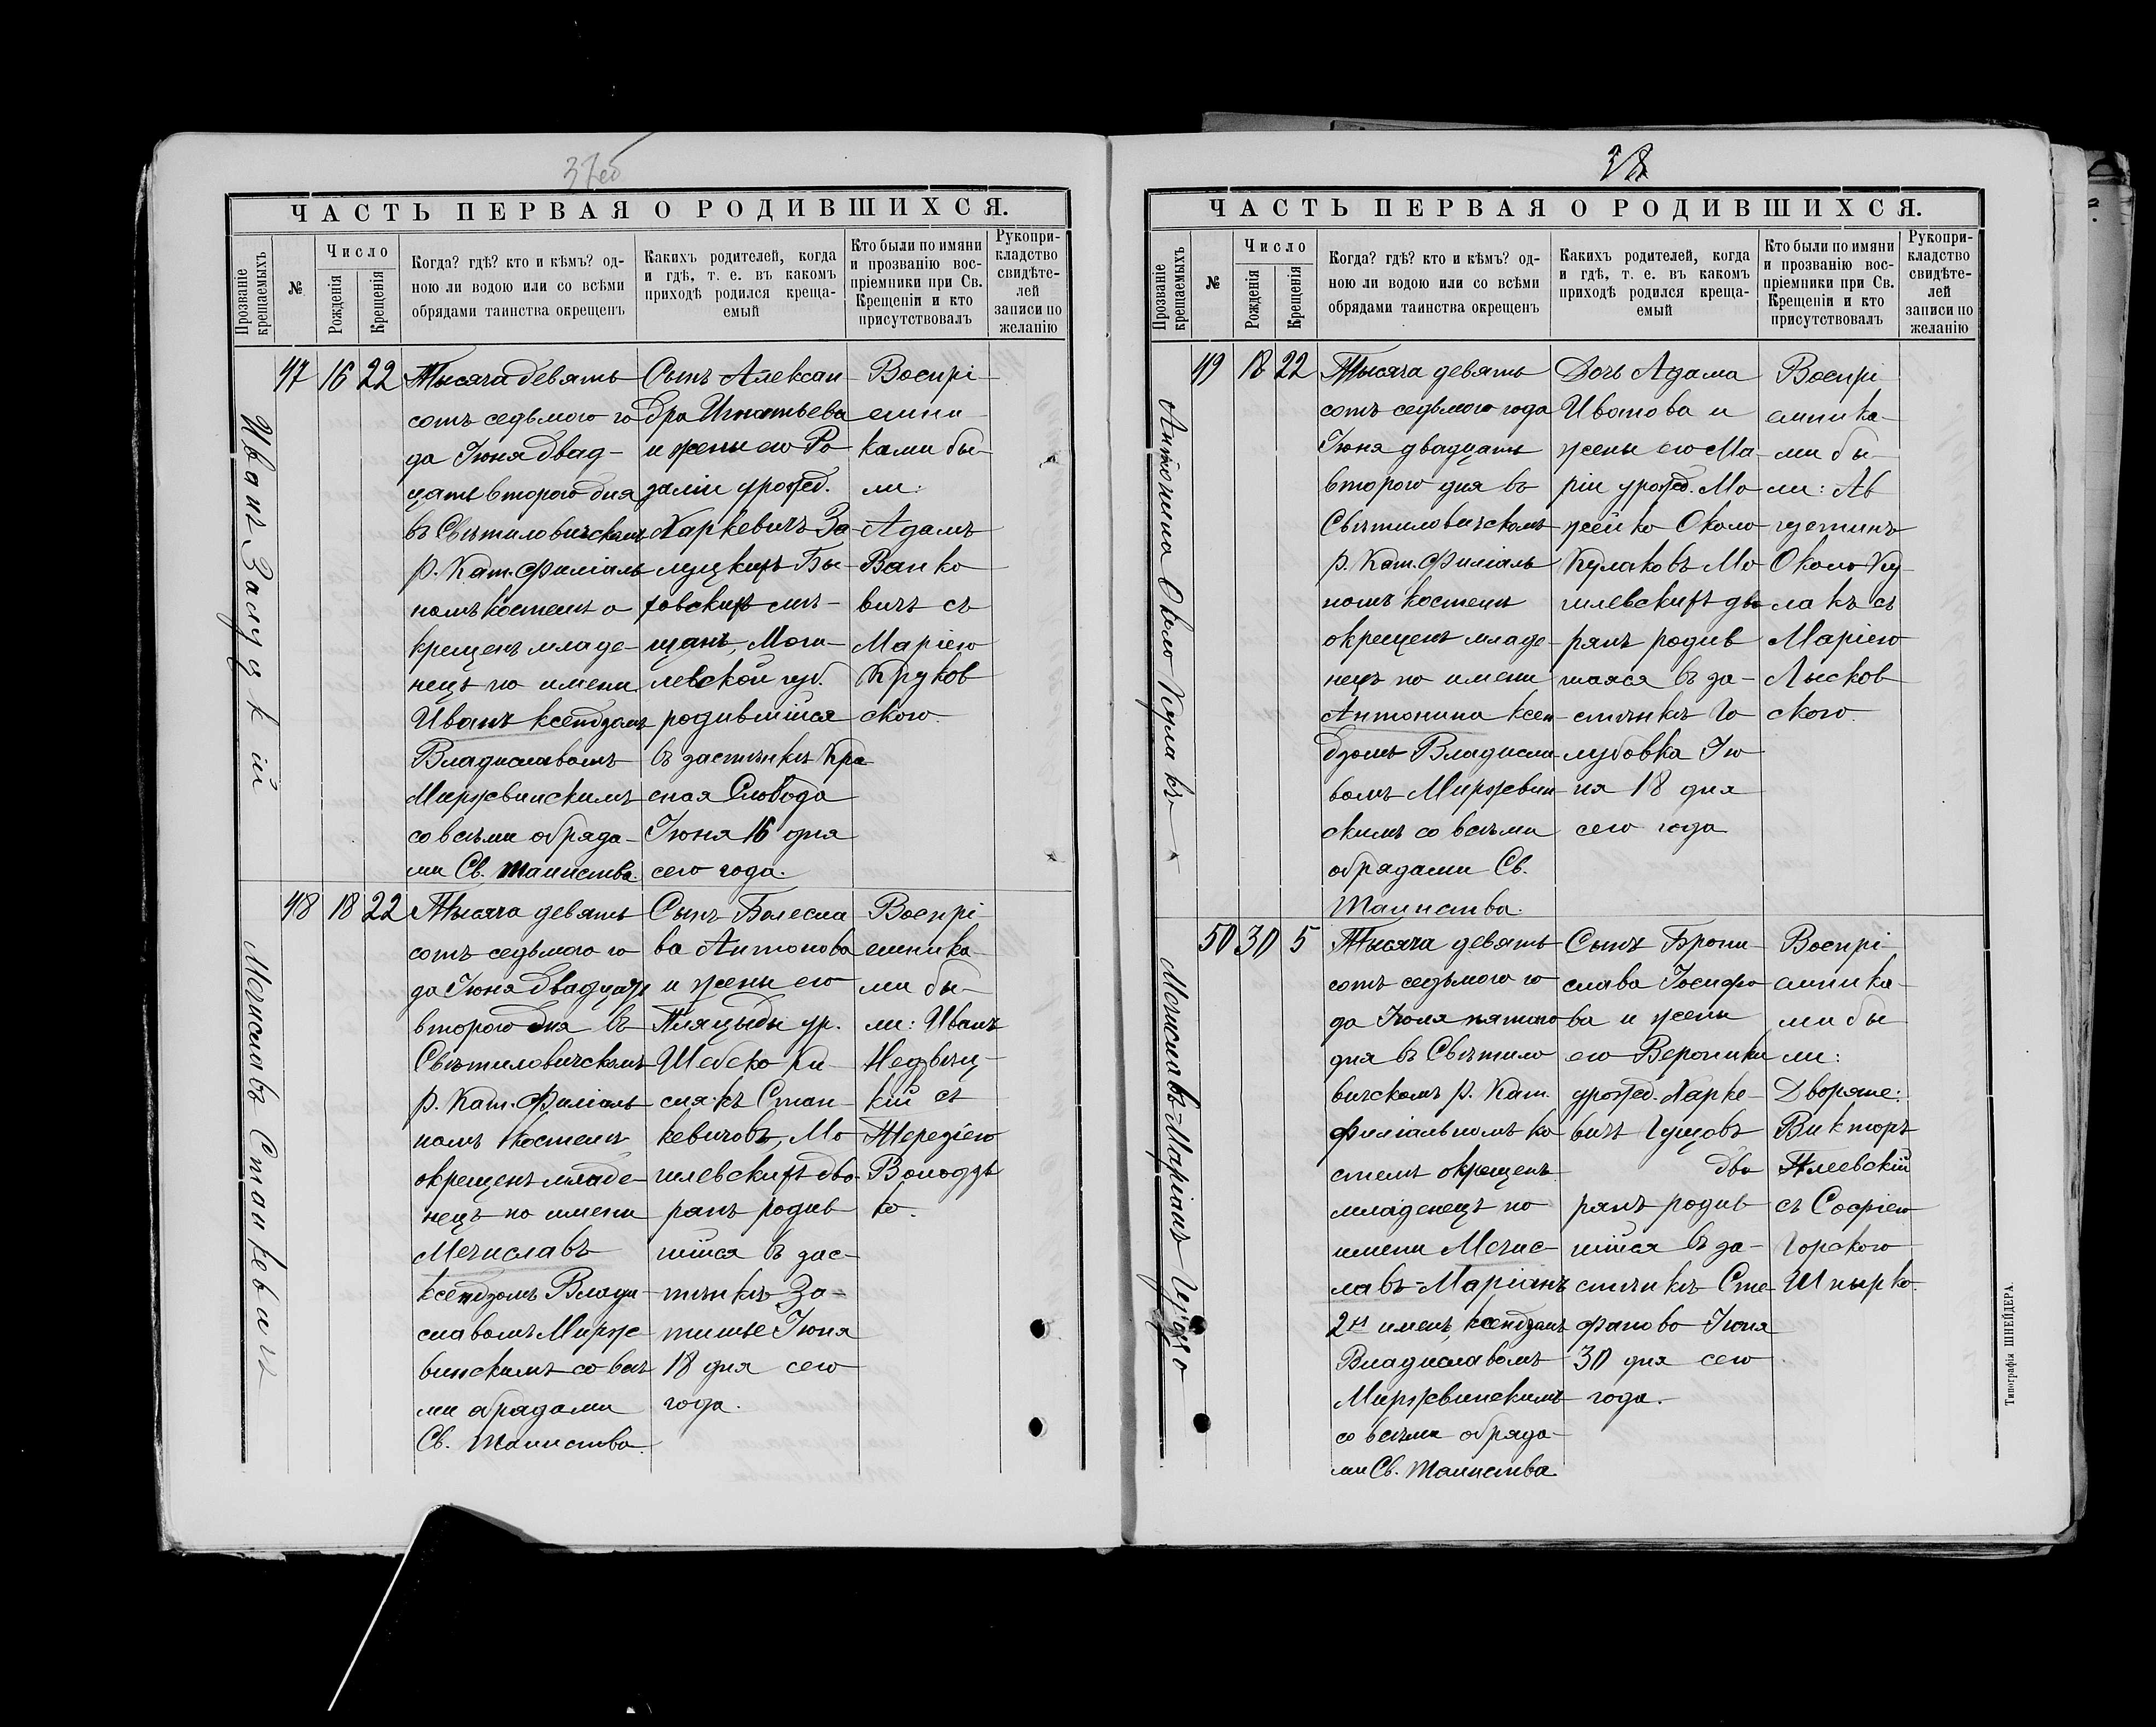 37об
ЧАСТЬ ПЕРВАЯ О РОДИВШИХСЯ.
Прозваніе крещаемыхъ
№
Число
Рожденія
Крещенія
Когда? гдѣ? кто и кѣмъ? од-
ною ли водою или со всѣми
обрядами таинства окрещенъ
Какихъ родителей, когда
и гдѣ, т. е. въ какомъ
приходѣ родился креща-
емый
Кто были по имяни
и прозванію вос-
пріемники при Св.
Крещеніи и кто
присутствовалъ
Рукопри-
кладство
свидѣте-
лей
записи по
желанію
Иванъ Залуцкій
47
16
22
Тысяча девять
сотъ седьмого го
да Іюня двад-
цать второго дня
въ Свѣтиловичскомъ
р. Кат. Филіаль
номъ костелѣ о
крещенъ младе-
нецъ по имени
Иванъ ксендзомъ
Владиславомъ
Миржвинскимъ
со всѣми обряда-
ми Св. Таинства.
Сынъ Алексан-
дра Игнатьева
и жены его Ро-
заліи урожд.
Харкевичъ За-
луцкихъ Бы-
ховскихъ мѣ-
щанъ, Моги-
левской губ.
родившійся
въ застѣнкѣ Кра
сная Слобода
Іюня 16 дня
сего года.
Воспрі-
емни-
ками бы-
ли:
Адамъ
Ванко
вичъ съ
Маріею
Круков
ского.
Мечиславъ Станкевичъ
48
18
22
Тысяча девять
сотъ седьмого го
да Іюня двадцать
второго дня въ
Свѣтиловичскомъ
р. Кат. Филіаль
номъ костелѣ
окрещенъ младе-
нецъ по имени
Мечиславъ
ксендзомъ Влади-
славомъ Мирж-
винскимъ со всѣ
ми обрядами
Св. Таинства.
Сынъ Болесла
ва Антонова
и жены его
Пляцыды ур.
Шебеко Ки-
сля къ Стан-
кевичовъ, Мо
гилевскихъ дво-
рянъ родив
шійся въ зас-
тѣнкѣ За-
тишье Іюня
18 дня сего
года.
Воспрі-
емника-
ми бы-
ли: Иванъ
Недвѣц-
кій съ
Терезіею
Володзь
ко.
38
ЧАСТЬ ПЕРВАЯ О РОДИВШИХСЯ.
Прозваніе крещаемыхъ
№
Число
Рожденія
Крещенія
Когда? гдѣ? кто и кѣмъ? од-
ною ли водою или со всѣми
обрядами таинства окрещенъ
Какихъ родителей, когда
и гдѣ, т. е. въ какомъ
приходѣ родился креща-
емый
Кто были по имяни
и прозванію вос-
пріемники при Св.
Крещеніи и кто
присутствовалъ
Рукопри-
кладство
свидѣте-
лей
записи по
желанію
Антонина Около Кулакъ
49
18
22
Тысяча девять
сотъ седьмого года
Іюня двадцать
второго дня въ
Свѣтиловичскомъ
р. Кат. Филіаль
номъ костелѣ
окрещенъ младе-
нецъ по имени
Антонина ксен-
дзомъ Владисла-
вомъ Миржвин-
скимъ со всѣми
обрядами Св.
Таинства.
Дочь Адама
Иванова и
жены его Ма-
ріи урожд. Мо
жейко Около
Кулаковъ Мо
гилевскихъ дво
рянъ родив
шаяся въ за-
стѣнкѣ Го
лубовка Ію
ня 18 дня
сего года
Воспрі
емника-
ми бы-
ли: Ав
густинъ
Около Ку-
ла къ съ
Маріею
Лысков
ского.
Мечиславъ-Маріанъ
50
30
5
Тысяча девять
сотъ седьмого го
да Іюля пятого
дня въ Свѣтило
вичскомъ р. Кат.
филіальномъ ко
стелѣ окрещенъ
младенецъ по
имени Мечис-
лавъ-Маріанъ
2хъ именъ, ксендзомъ
Владиславомъ
Миржвинскимъ
со всѣми обряда-
ми Св. Таинства
Сынъ Брони-
слава Іосифо
ва и жены
его Вероники
урожд. Харке-
вичъ
дво
рянъ родив
шійся въ за-
стѣнкѣ Сте-
фаново Іюня
30 дня сего
года.
Воспрі-
емника-
ми бы
ли:
Дворяне:
Викторъ
съ Софіею
Горского
Шпырко.
Типографія ШНЕЙДЕРА.